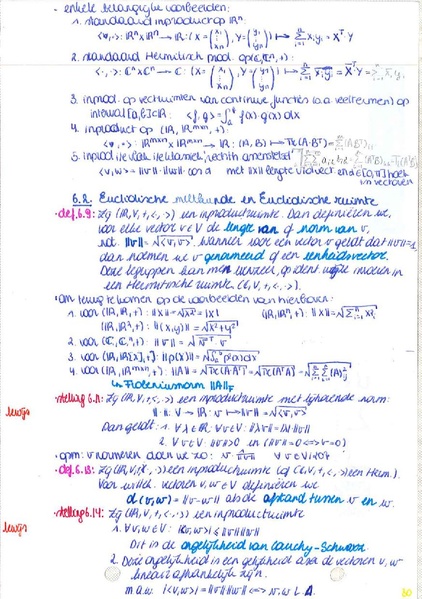 - enkele belangrijke voorbeelden:
1. standaard inproduct op ℝⁿ.
<·,·>: ℝⁿ×ℝⁿ → ℝ: (X = (x₁ ⋮ xₙ), Y = (y₁ ⋮ yₙ)) ↦ Σ xᵢyᵢ = Xᵀ Y
2. standaard Hermitisch prod. op (ℂ, ℂⁿ, +):
<·,·>: ℂⁿ×ℂⁿ → ℂ: (X = (x₁ ⋮ xₙ), Y = (y₁ ⋮ yₙ)) ↦
3. inprod. op vectorruimten van continue functies (o.a. veeltermen) op
interval [a,b]⊂ℝ: <f,g> = ∫ₐᵇ f(x) g(x) dx
4. inproduct op (ℝ, ℝᵐˣⁿ, +)
<·,·>: ℝᵐˣⁿ × ℝᵐˣⁿ → ℝ: (A,B) ↦ Tr(A·Bᵀ)
5. inprod.
<v,w> = ||v||·||w||·cos α met ||x|| lengte v/d vect. end α∈[0,π] hoek
vectoren
6.2. Euclidische meetkunde en Euclidische ruimte
- def. 6.9: Zij (ℝ,V,+,<·,·>) een inproductruimte. Dan definiëren we,
voor elke vector v∈V de lengte van of norm van v,
not. ||v|| = √<v,v>. Wanneer voor een vector v geldt dat ||v||=1,
dan noemen we v genormeerd of een eenheidsvector.
Deze begrippen kan men invoeren in
een Hermitische ruimte (ℂ,V,+,<·,·>).
- Om terug te komen op de voorbeelden van hierboven:
1. voor (ℝ,ℝ,+): ||x|| = √x² = |x| (ℝ,ℝⁿ,+): ||X|| = √Σ xᵢ²
(ℝ,ℝ²,+): ||(x,y)|| = √x²+y²
2. voor (ℂ,ℂⁿ,+):
3. voor (ℝ,ℝ[x],+): ||p(x)|| = √∫ₐᵇ p²(x)dx
4. voor (ℝ,ℝᵐˣⁿ,+): ||A|| = √Tr(A·Aᵀ) = √Tr(AᵀA) =
↳ Frobeniusnorm ||A||_F
bewijs
- stelling 6.11: Zij (ℝ,V,+,<·,·>) een inproductruimte met bijhorende norm:
||·||: V → ℝ: v ↦ ||v|| = √<v,v>
Dan geldt: 1. ∀λ∈ℝ ∀v∈V: ||λv|| = |λ|·||v||
2. ∀v∈V: ||v||≥0 en (||v||=0 ⟺ v=0)
- opm: v normeren doen we zo: ∀v∈V\{0}
- def. 6.13: Zij (ℝ,V,+,<·,·>) een inproductruimte (of (ℂ,V,+,<·,·>) een Herm.)
Voor willek. vectoren v,w∈V definiëren we
d(v,w) = ||v-w|| als de afstand tussen v en w.
bewijs
- stelling 6.14: Zij (ℝ,V,+,<·,·>) een inproductruimte
1. ∀v,w∈V: |<v,w>| ≤ ||v||·||w||
Dit is de ongelijkheid van Cauchy-Schwarz
2. Deze ongelijkheid is een gelijkheid a.s.a. de vectoren v,w
lineair afhankelijk zijn.
m.a.w. |<v,w>| = ||v||·||w|| ⟺ v,w L.A.